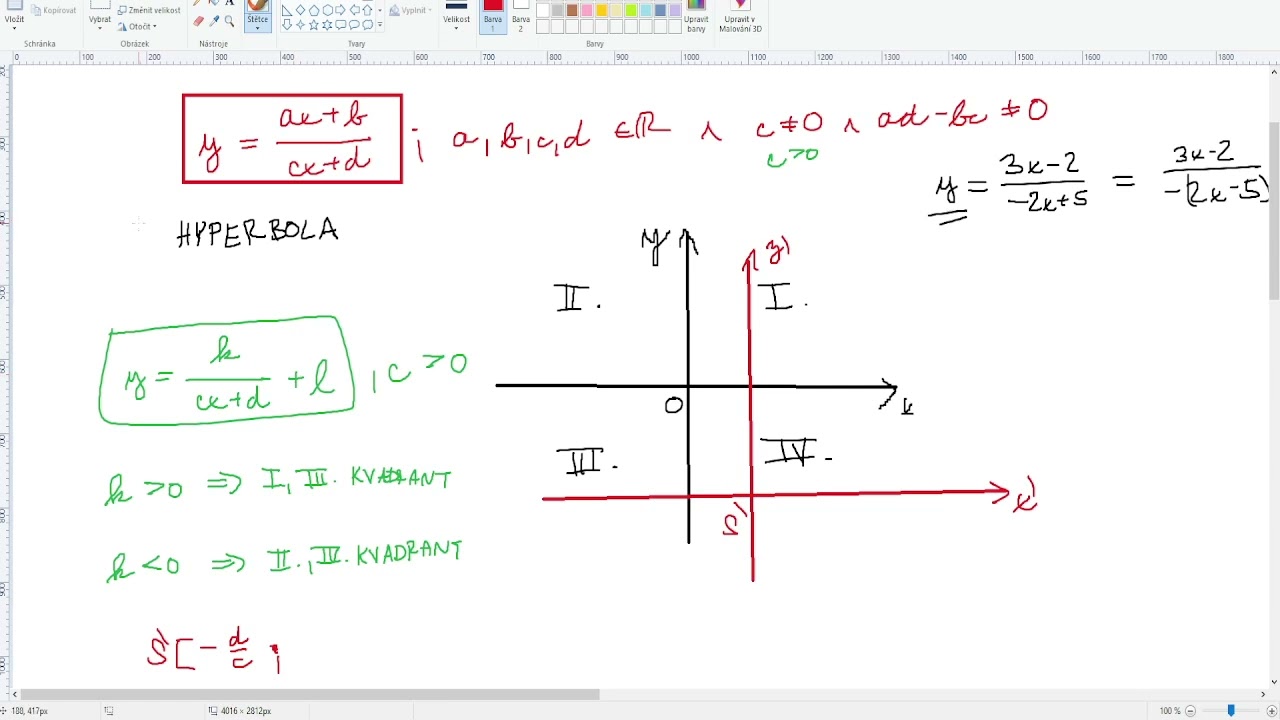 Vložit
Kopírovat
Schránka
Vybrat
Změnit velikost
Otočit
Obrázek
A
Nástroje
Štětce
Vyplnit
Tvary
Velikost
Barva 1
Barva 2
Upravit barvy
Barvy
Upravit v Malování 3D
0 100 200 300 400 500 600 700 800 900 1000 1100 1200 1300 1400 1500 1600 1700 1800
y = (ax+b)/(cx+d) ; a, b, c, d ∈ ℝ ∧ c ≠ 0 ∧ ad - bc ≠ 0
c > 0
y = (3x-2)/(-2x+5) = (3x-2)/(-(2x-5))
HYPERBOLA
y
y'
II.
I.
y = k/(cx+d) + l , c > 0
0
x
III.
IV.
k > 0 ⇒ I, III. KVADRANT
S'
x'
k < 0 ⇒ II., IV. KVADRANT
S'[- d/c ;
188, 417px
4016 × 2812px
100 %